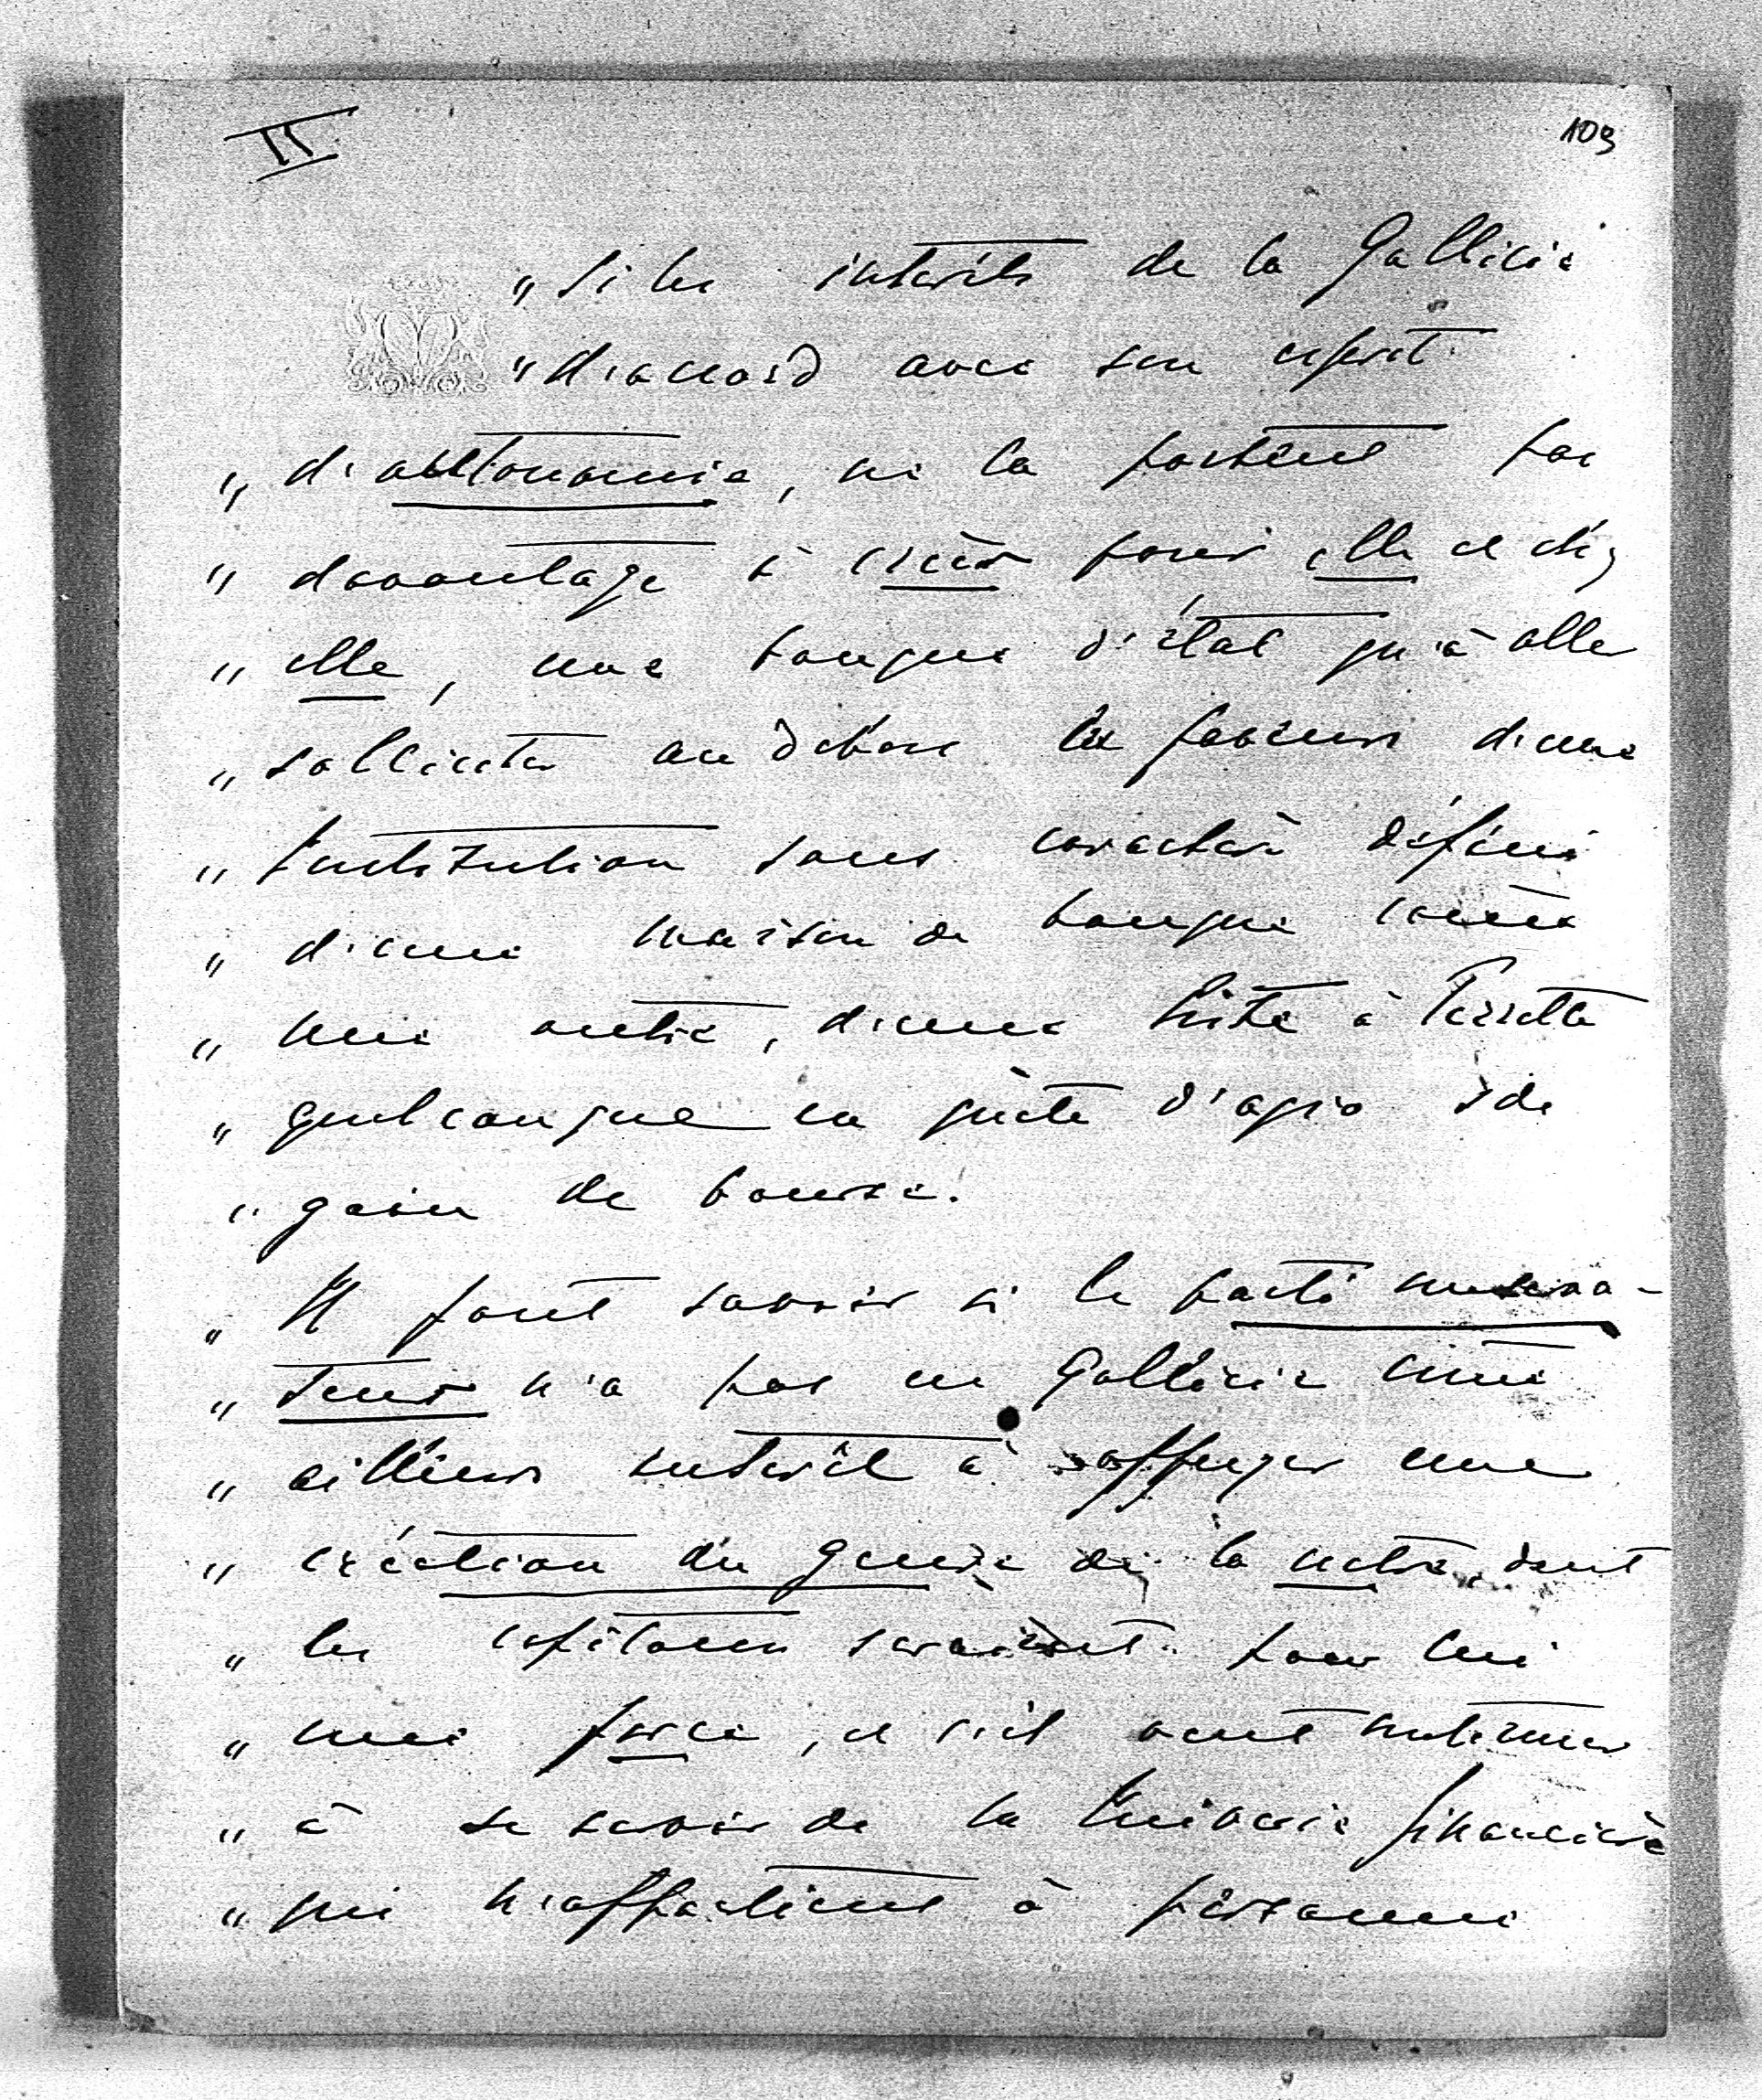 II
103
„ Si les intérêts de la Gallicie
„ d'accord avec son esprit
„ d'autonomie, ne la portent pas
„ davantage à créer pour elle et chez
„ elle, une banque d'état qu'à aller
„ solliciter au dehors les faveurs d'une
„ Institution sans caractère défini
„ d'une maison de banque comme
„ une autre, d'une boîte à Perrette
„ quelconque en quête d'agio & de
„ gain de bourse.
„ Il faut savoir si le parti conserva-
„ teur n'a pas en Gallicie comme
„ ailleurs intérêt à appuyer une
„ création du genre de la notre, dont
„ les capitaux seraient pour lui
„ une force, et s'il veut continuer
„ à se servir de la financière
„ qui n'appartient à personne